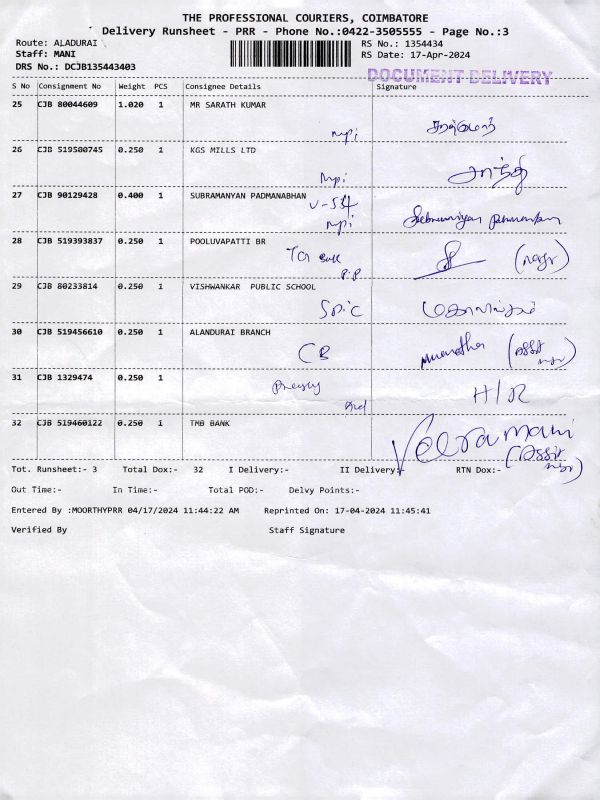 THE PROFESSIONAL COURIERS, COIMBATORE
Delivery Runsheet - PRR - Phone No.:0422-3505555 - Page No.:3
Route: ALADURAI
RS No.: 1354434
Staff: MANI
RS Date: 17-Apr-2024
DRS No.: DCJB135443403
DOCUMENT DELIVERY
S No Consignment No Weight PCS Consignee Details Signature
25 CJB 80044609 1.020 1 MR SARATH KUMAR
mpi
26 CJB 519500745 0.250 1 KGS MILLS LTD
mpi சாந்தி
27 CJB 90129428 0.400 1 SUBRAMANYAN PADMANABHAN
V-534
mpi
28 CJB 519393837 0.250 1 POOLUVAPATTI BR
29 CJB 80233814 0.250 1 VISHWANKAR PUBLIC SCHOOL
30 CJB 519456610 0.250 1 ALANDURAI BRANCH
CB
31 CJB 1329474 0.250 1
H/R
32 CJB 519460122 0.250 1 TMB BANK
Veeramani
Tot. Runsheet:- 3 Total Dox:- 32 I Delivery:- II Delivery:- RTN Dox:-
Out Time:- In Time:- Total POD:- Delvy Points:-
Entered By :MOORTHYPRR 04/17/2024 11:44:22 AM Reprinted On: 17-04-2024 11:45:41
Verified By Staff Signature